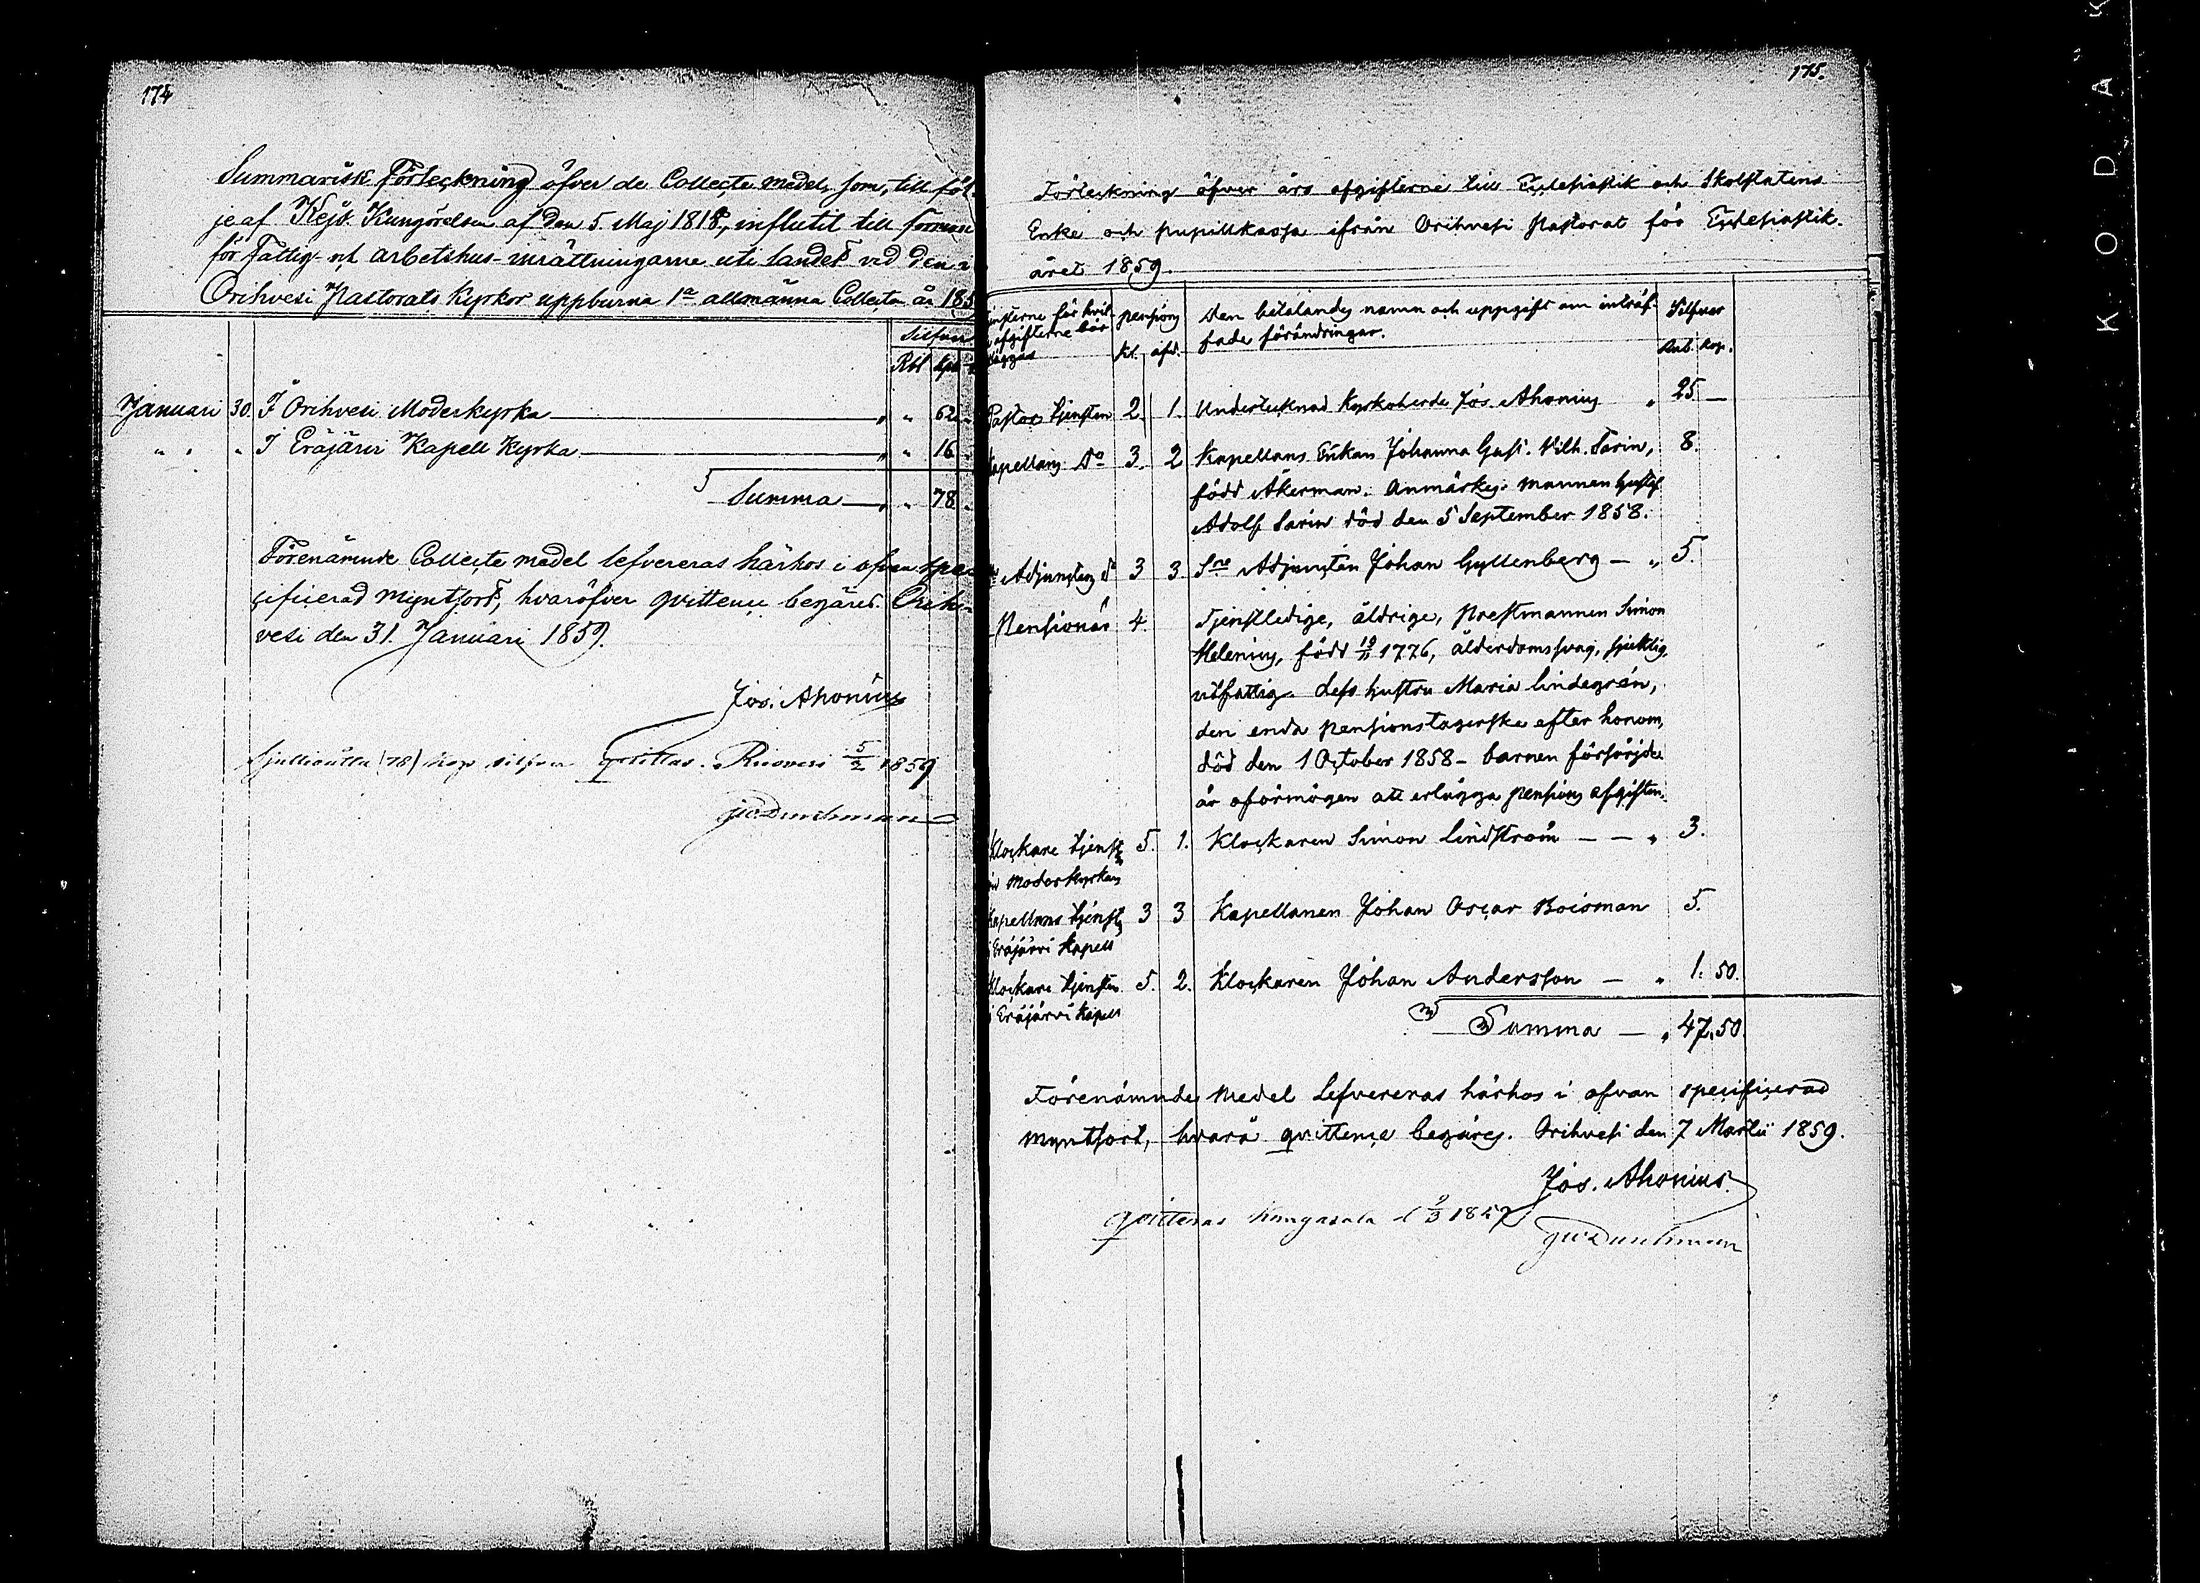 174
Summarisk Förteckning öfver de Collecte medel, som, till föl-
je af Kejs. Kungörelsen af den 5. Maj 1818, influtit till förmån
för Fattig- och arbetshus-inrättningarne uti landet vid den i
Orihvesi Pastorats Kyrkor uppburna 1a allmänna Collecten år 185
Silfver
Rbl Kop
Januari 30. I Orihvesi Moderkyrka — „ „ 62.
„ „ „ I Eräjärvi Kapell Kyrka — „ „ 16.
Summa — „ „ 78.
Förenämnde Collecte medel lefvereras härhos i ofvan spe-
cificerad myntsort, hvaröfver qvittence begäres. Orih-
vesi den 31. Januari 1859.
Jos. Ahonius
Sjuttioåtta (78) kop silfver qvitteras. Ruovesi 5/2 1859
175.
Förteckning öfver års afgifterne till Ecclesiastik och Skolstatens
Enke och pupillkassa ifrån Orihvesi Pastorat för Ecclesiastik-
året 1859.
Tjensterne för hvil-
ka afgifterne bör
läggas
pensions
kl. afd.
Den betalandes namn och uppgift om inträf-
fade förändringar.
Silfver
Rub. Kop.
Pastors tjensten 2. 1. Undertecknad Kyrkoherde Jos. Ahonius „ 25 —
Kapellans do 3. 2 Kapellans Enkan Johanna Gust. Vilh. Sarin, 8.
född Åkerman. Anmärkes: mannen Gustaf
Adolf Sarin död den 5 September 1858.
Adjunctens do 3 3 Sne Adjuncten Johan Gyllenberg — „ 5.
Pensionär 4. Tjenstledige, åldrige, prestmannen Simon
Helenius, född 19/11 1776, ålderdomssvag, sjuklig,
utfattig. Dess hustru Maria Lindegrén,
den enda pensionstagerska efter honom,
död den 1 October 1858 – barnen försörjde
är oförmögen att erlägga pensions afgiften.
Klockare tjensten 5. 1. Klockaren Simon Lindström — — „ 3.
vid Moderkyrkan
Kapellans tjensten 3 3 Kapellanen Johan Oscar Roisman 5.
i Eräjärvi Kapell
Klockare tjensten 5. 2. Klockaren Johan Andersson — „ 1. 50.
i Eräjärvi Kapell
Summa — „ 47.50.
Förenämnde medel lefvereras härhos i ofvan specificerad
myntsort, hvarå qvittence begäres. Orihvesi den 7 Martii 1859.
Jos. Ahonius.
qvitteras Kangasala d 9/3 1859
KODAK